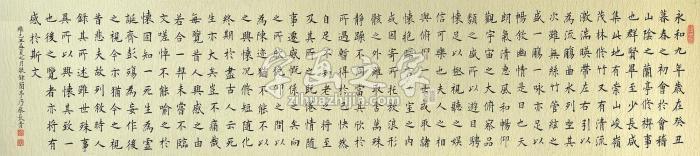 永和九年歲在癸丑
暮春之初會於會稽
山陰之蘭亭脩稧事
也群賢畢至少長咸
集此地有崇山峻嶺
茂林脩竹又有清流
激湍映帶左右引以
為流觴曲水列坐其
次雖無絲竹管弦之
盛一觴一詠亦足以
暢敘幽情是日也天
朗氣清惠風和暢仰
觀宇宙之大俯察品
類之盛所以遊目騁
懷足以極視聽之娛
信可樂也夫人之相
與俯仰一世或取諸
懷抱悟言一室之內
或因寄所託放浪形
骸之外雖趣舍萬殊
靜躁不同當其欣於
所遇暫得於己快然
自足不知老之將至
及其所之既倦情隨
事遷感慨係之矣向
之所欣俛仰之間以
為陳迹猶不能不以
之興懷況脩短隨化
終期於盡古人云死
生亦大矣豈不痛哉
每覽昔人興感之由
若合一契未嘗不臨
文嗟悼不能喻之於
懷固知一死生為虛
誕齊彭殤為妄作後
之視今亦猶今之視
昔悲夫故列敘時人
錄其所述雖世殊事
異所以興懷其致一
也後之覽者亦將有
感於斯文
孟夏之月敬錄蘭亭序